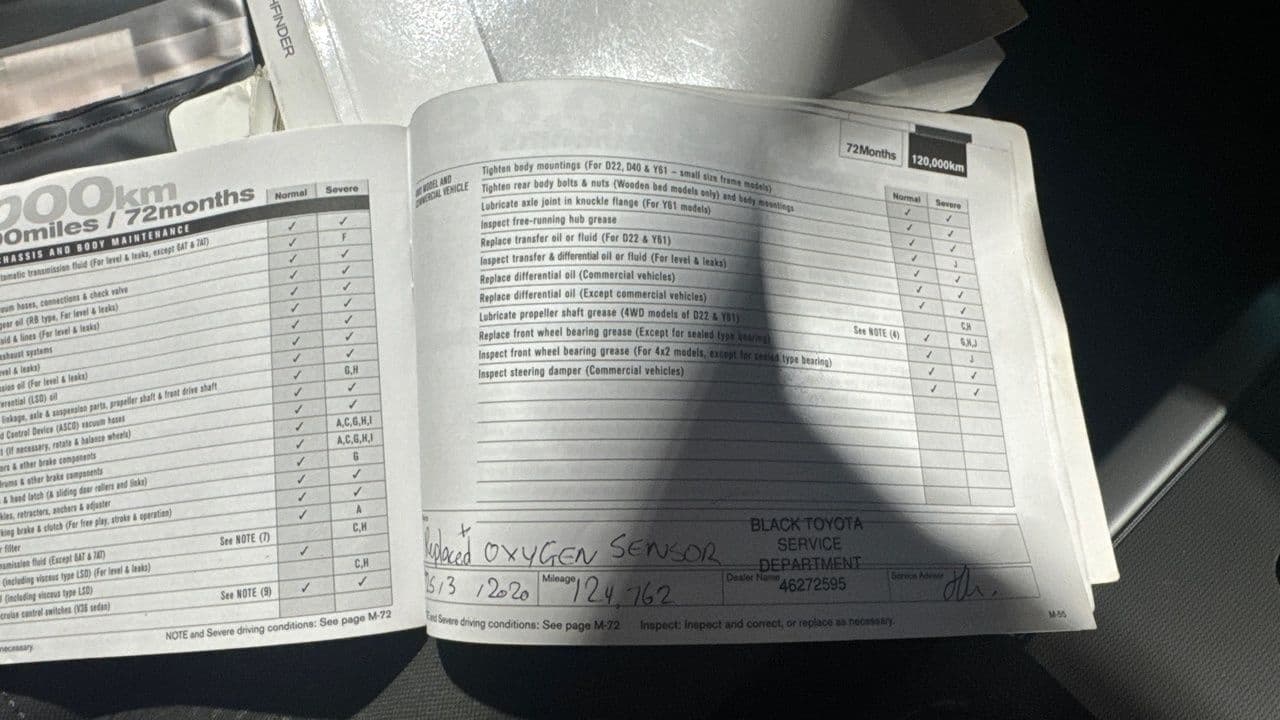 FINDER
000km
00miles / 72months
Normal Severe
CHASSIS AND BODY MAINTENANCE
transmission fluid (For level & leaks, except 6AT & 7AT)
✓ ✓
✓ F
hoses, connections & check valve
gear oil (RB type, For level & leaks)
& lines (For level & leaks)
systems
& leaks)
oil (For level & leaks)
(LSD) oil
G,H
linkage, axle & suspension parts, propeller shaft & front drive shaft
Control Device (ASCD) vacuum hoses
(if necessary, rotate & balance wheels)
A,C,G,H,I
& other brake components
A,C,G,H,I
& other brake components
G
& hood latch (& sliding door rollers and links)
retractors, anchors & adjuster
brake & clutch (For free play, stroke & operation)
A
filter
See NOTE (7)
C,H
fluid (Except 6AT & 7AT)
(including viscous type LSD) (For level & leaks)
C,H
(including viscous type LSD)
See NOTE (9)
control switches (V36 sedan)
NOTE and Severe driving conditions: See page M-72
necessary.
72Months
120,000km
MODEL AND
COMMERCIAL VEHICLE
Normal Severe
Tighten body mountings (For D22, D40 & Y61 – small size frame models)
Tighten rear body bolts & nuts (Wooden bed models only) and body mountings
Lubricate axle joint in knuckle flange (For Y61 models)
Inspect free-running hub grease
Replace transfer oil or fluid (For D22 & Y61)
Inspect transfer & differential oil or fluid (For level & leaks)
Replace differential oil (Commercial vehicles)
C,H
Replace differential oil (Except commercial vehicles)
G,H,J
Lubricate propeller shaft grease (4WD models of D22 & Y61)
See NOTE (4)
J
Replace front wheel bearing grease (Except for sealed type bearing)
Inspect front wheel bearing grease (For 4x2 models, except for sealed type bearing)
Inspect steering damper (Commercial vehicles)
Replaced OXYGEN SENSOR
BLACK TOYOTA
SERVICE
DEPARTMENT
46272595
3 / 2020
Mileage 124,762
Dealer Name
Service Advisor
and Severe driving conditions: See page M-72 Inspect: Inspect and correct, or replace as necessary.
M-55